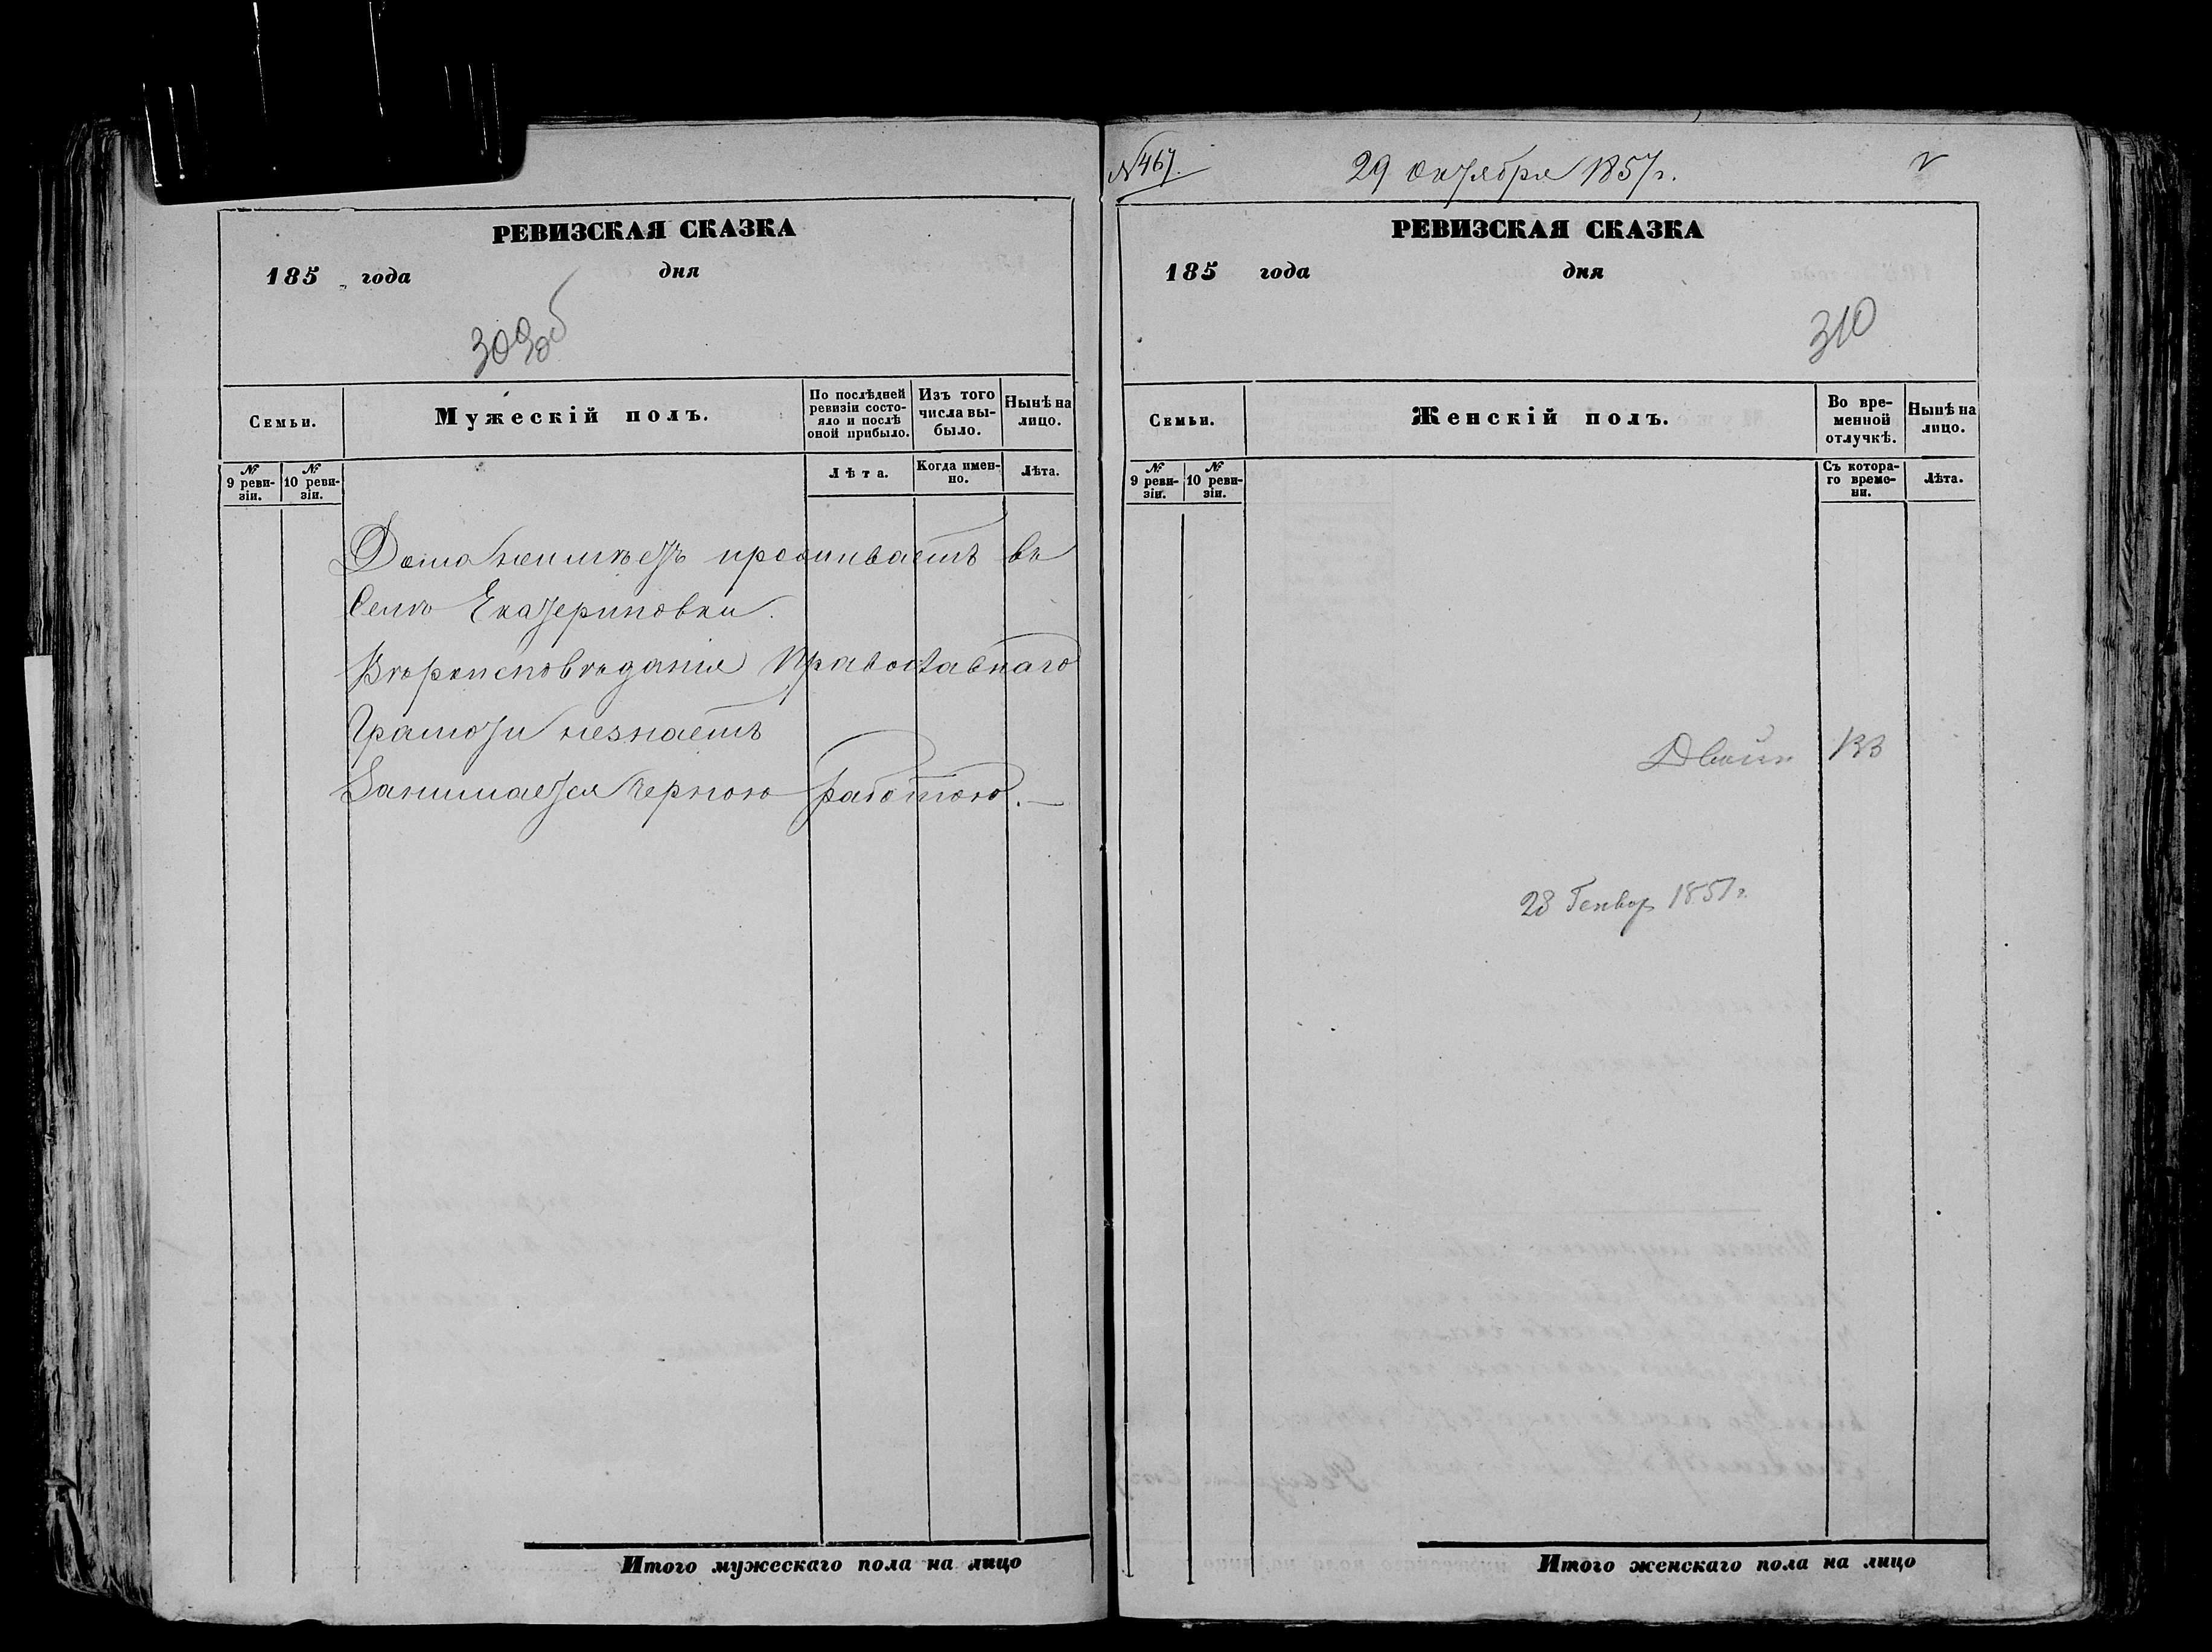 РЕВИЗСКАЯ СКАЗКА
185 года дня
309об
Семьи.
Мужескій полъ.
По послѣдней ревизіи состояло и послѣ оной прибыло.
Изъ того числа выбыло.
Нынѣ на лицо.
№ 9 ревизіи.
№ 10 ревизіи.
Лѣта.
Когда именно.
Лѣта.
Дома неимѣетъ проживаетъ въ
Селѣ Екатериновки.
Вѣроисповѣданія Православнаго
Грамоты незнаетъ
Занимается черною работою. —
Итого мужескаго пола на лицо
№467.
29 Октября 1857 г.
РЕВИЗСКАЯ СКАЗКА
185 года дня
310
Семьи.
Женскій полъ.
Во временной отлучкѣ.
Нынѣ на лицо.
№ 9 ревизіи.
№ 10 ревизіи.
Съ котораго времени.
Лѣта.
28 Генвар 1851 г.
Итого женскаго пола на лицо